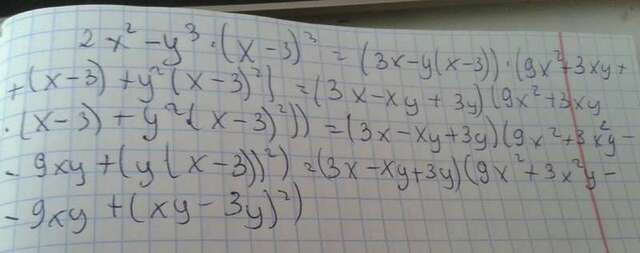 2x² - y³ · (x - 3)³ = (3x - y(x - 3)) · (9x² + 3xy +
+ (x - 3) + y²(x - 3)²) = (3x - xy + 3y)(9x² + 3xy
· (x - 3) + y²(x - 3)²)) = (3x - xy + 3y)(9x² + 3x²y -
- 9xy + (y(x - 3))²) = (3x - xy + 3y)(9x² + 3x²y -
- 9xy + (xy - 3y)²)